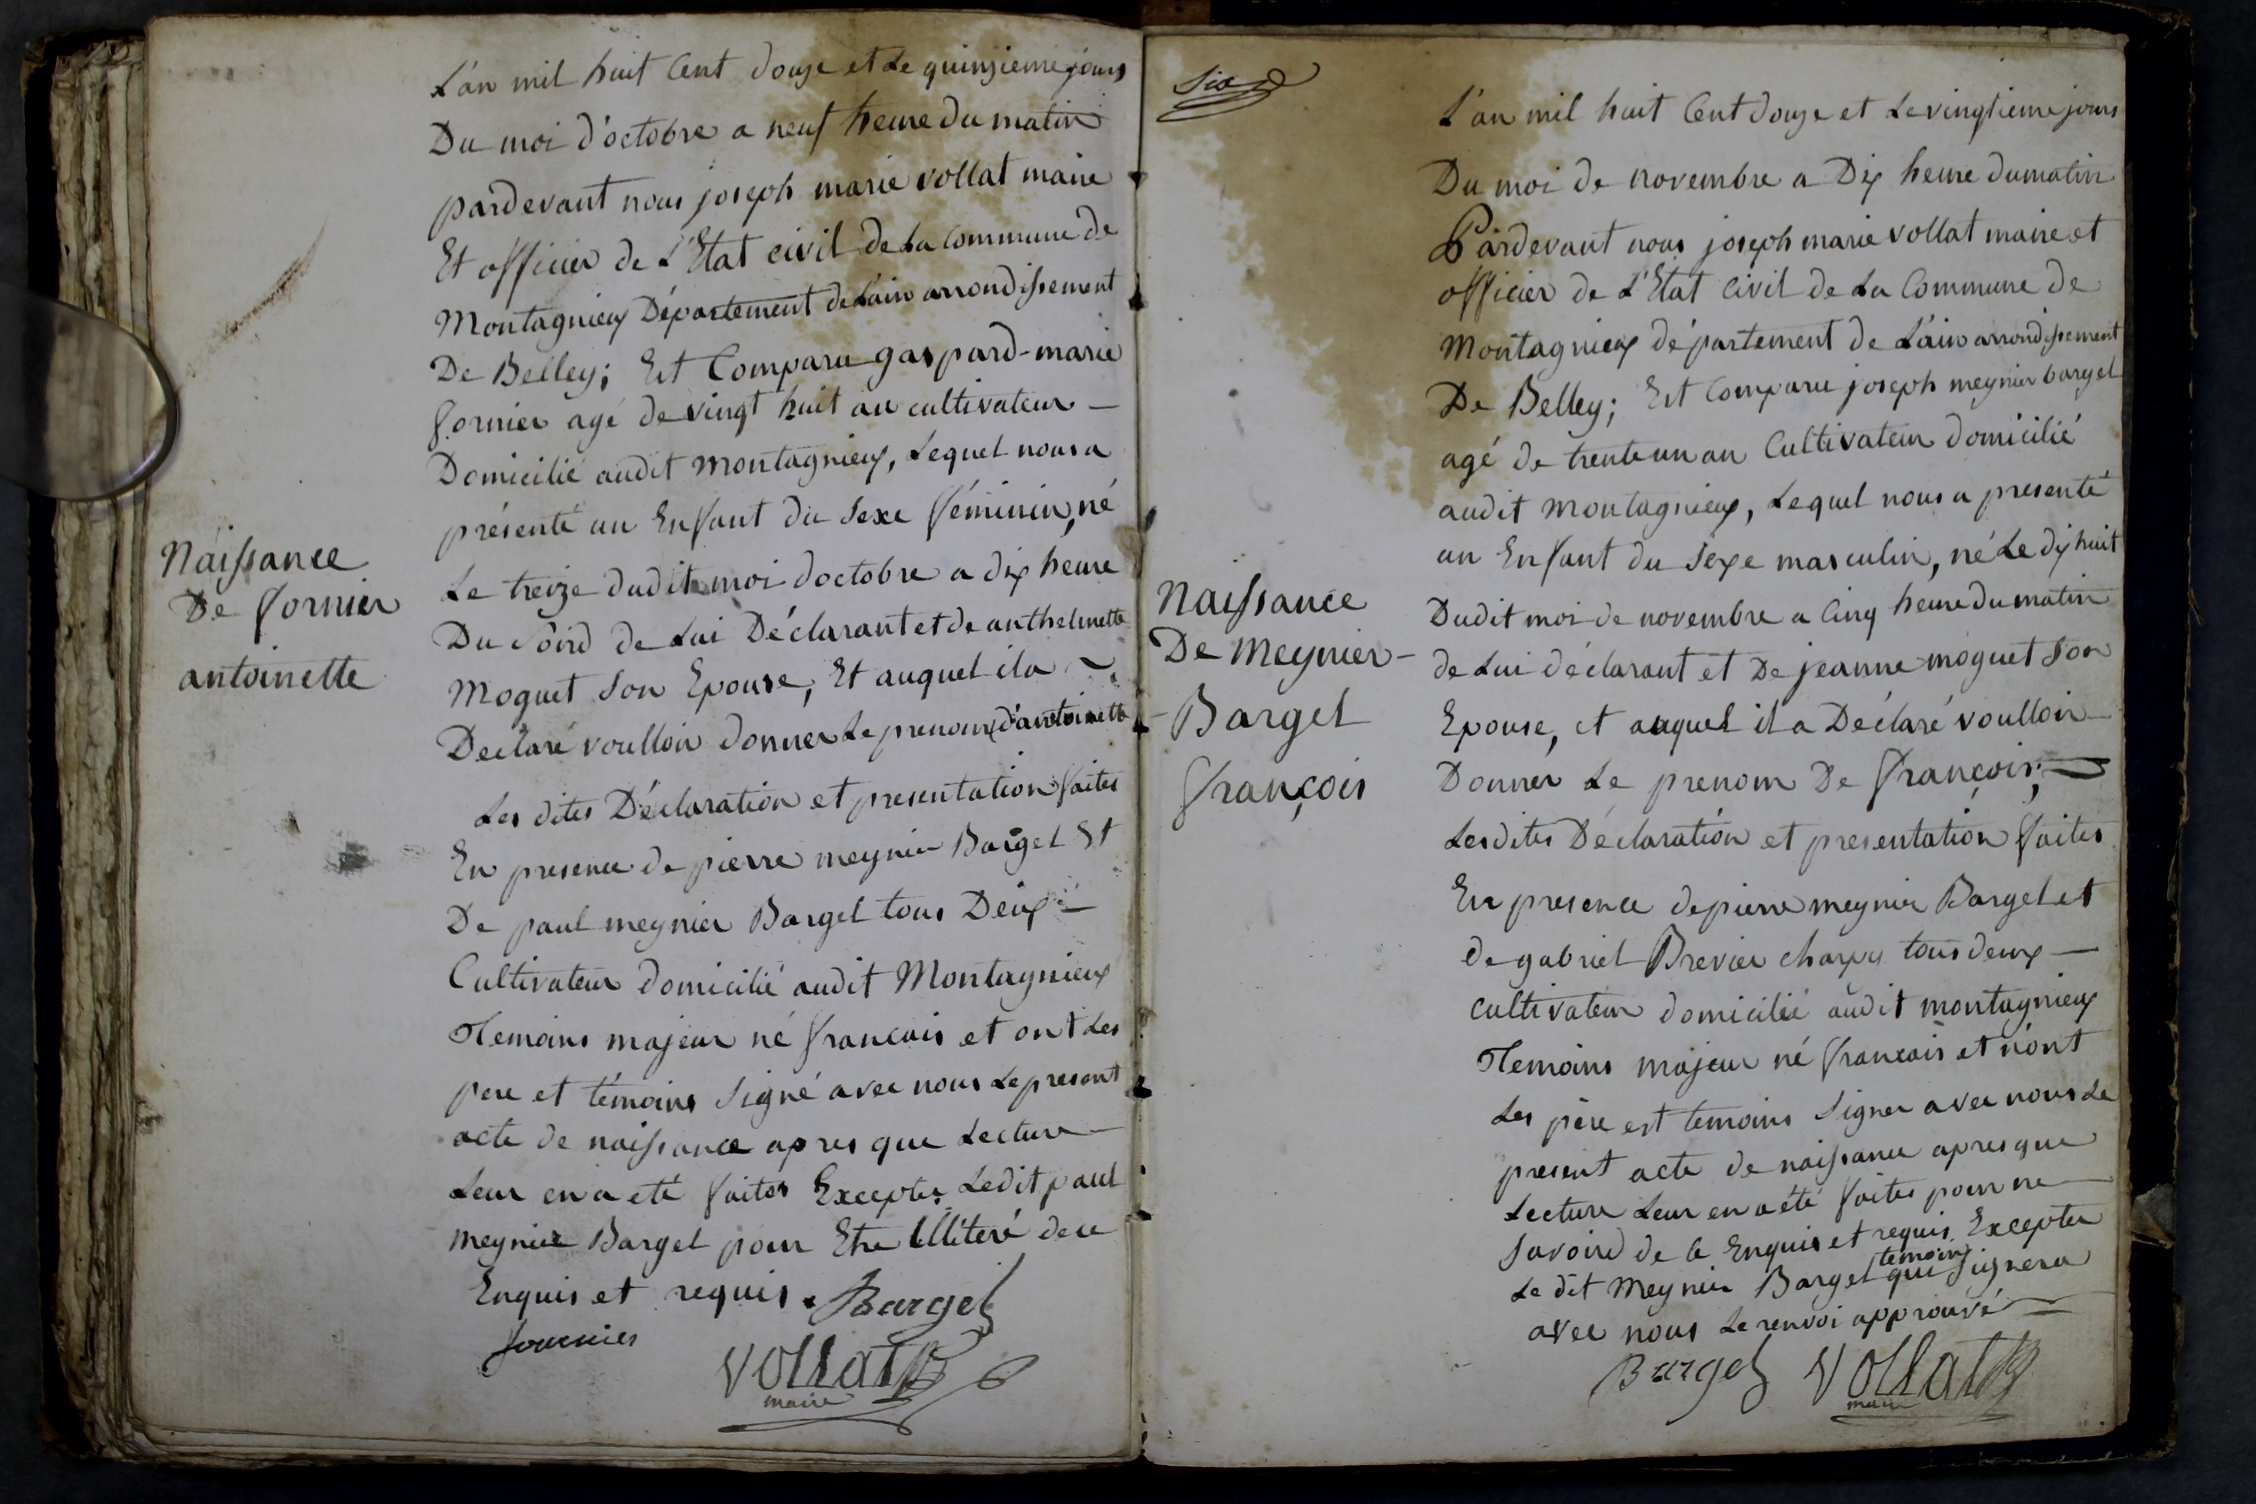 L'an mil huit Cent douze et Le quinzieme jours
Du moi d'octobre a neuf heure du matin
pardevant nous joseph marie vollat maire
Et officier de L'Etat civil de La Commune de
Montagnieux Département de L'ain arrondissement
De Belley; Est Comparu gaspard-marie
fornier agé de vingt huit an cultivateur —
Domicilié audit Montagnieux, Lequel nous a
présenté un Enfant du Sexe féminin, né
Le treize dudit moi doctobre a dix heure
Du Soird de Lui Déclarant et de anthelmette
Moguet Son Epouse, Et auquel il a ~
Déclaré voulloir donner Le prenom d'antoinette
Les dites Déclaration et presentation faites
En presence de pierre meynier Bargel Et
De paul meynier Bargel tous Deux —
Cultivateur domicilié audit Montagnieux
Temoins majeur né francais et ont Les
pere et témoins Signé avec nous Le present
acte de naissance apres que Lecture —
Leur en a eté faites Excepter Ledit paul
meynier Bargel pour Etre Illiteré de ce
Enquis et requis. Bargel
fournier
VOLLAT
maire
Naissance
De fornier
antoinette
Six
L'an mil huit Cent douze et Le vingtieme jours
Du moi de novembre a Dix heure du matin
Pardevant nous joseph marie vollat maire et
officier de L'Etat Civil de La Commune de
Montagnieux département de L'ain arrondissement
De Belley; Est Comparu joseph meynier bargel
agé de trente un an Cultivateur domicilié
audit Montagnieux, Lequel nous a presenté
un Enfant du Sexe masculin, né Le dix huit
Dudit moi de novembre a Cinq heure du matin
de Lui déclarant et De jeanne moguet Son
Epouse, et auquel il a Déclaré voulloir —
Donner Le prenom De françois; —
Lesdites Déclaration et presentation faites
En presence de pierre meynier Bargel et
de gabriel Brevier tous deux —
cultivateur domicilié audit montagnieux
Temoins majeur né francais et n'ont
Les père est temoins Signer avec nous Le
present acte de naissance apres que
Lecture Leur en a été faites pour ne —
Savoird de Ce Enquis et requis Excepter
Le dit Meynier Bargel temoin qui Signera
avec nous Le renvoi approuvé —
Bargel VOLLAT
maire
Naissance
De Meynier-
-Bargel
françois